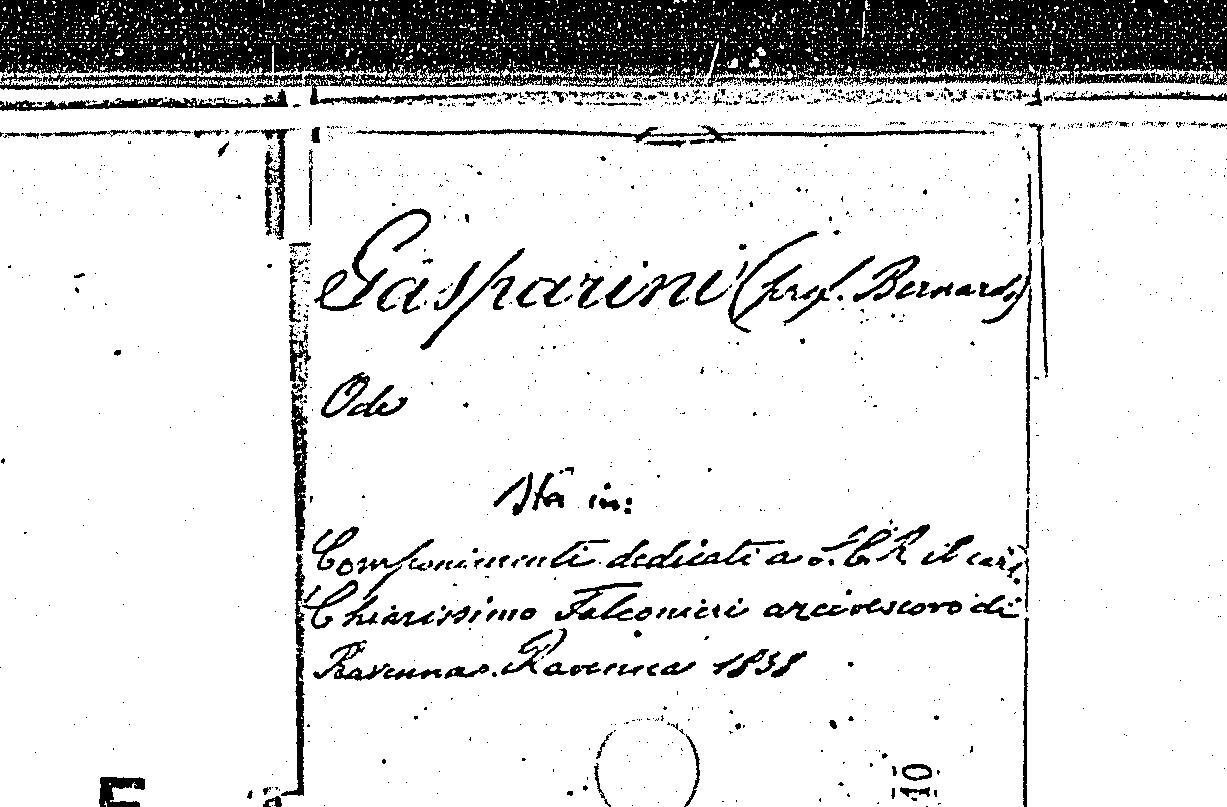 Gasparini (prof. Bernardo)
Ode
Sta in:
Componimenti dedicati a S. E. R. il card.
Chiarissimo Falconieri arcivescovo di
Ravenna. Ravenna 1838
10